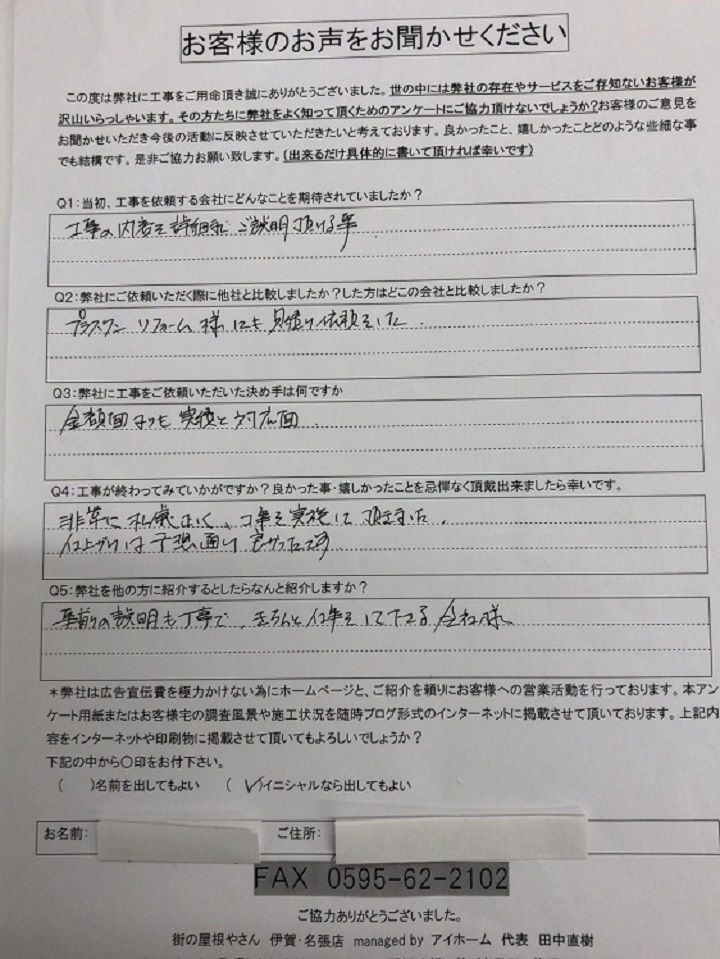 お客様のお声をお聞かせください
この度は弊社に工事をご用命頂き誠にありがとうございました。世の中には弊社の存在やサービスをご存知ないお客様が
沢山いらっしゃいます。その方たちに弊社をよく知って頂くためのアンケートにご協力頂けないでしょうか?お客様のご意見を
お聞かせいただき今後の活動に反映させていただきたいと考えております。良かったこと、嬉しかったことどのような些細な事
でも結構です。是非ご協力お願い致します。(出来るだけ具体的に書いて頂ければ幸いです)
Q1:当初、工事を依頼する会社にどんなことを期待されていましたか?
工事の内容を詳細にご説明頂ける事
Q2:弊社にご依頼いただく際に他社と比較しましたか?した方はどこの会社と比較しましたか?
プラスワンリフォーム様にも見積り依頼をした.
Q3:弊社に工事をご依頼いただいた決め手は何ですか
金額面よりも実績と対応面.
Q4:工事が終わってみていかがですか?良かった事・嬉しかったことを忌憚なく頂戴出来ましたら幸いです。
非常に礼儀よく、工事を実施して頂きました.
仕上がりは予想通り良かったです
Q5:弊社を他の方に紹介するとしたらなんと紹介しますか?
事前の説明も丁寧で、きちんと仕事をして下さる会社様
*弊社は広告宣伝費を極力かけない為にホームページと、ご紹介を頼りにお客様への営業活動を行っております。本アン
ケート用紙またはお客様宅の調査風景や施工状況を随時ブログ形式のインターネットに掲載させて頂いております。上記内
容をインターネットや印刷物に掲載させて頂いてもよろしいでしょうか?
下記の中から〇印をお付下さい。
( )名前を出してもよい (✓)イニシャルなら出してもよい
お名前: ご住所:
FAX 0595-62-2102
ご協力ありがとうございました。
街の屋根やさん 伊賀・名張店 managed by アイホーム 代表 田中直樹